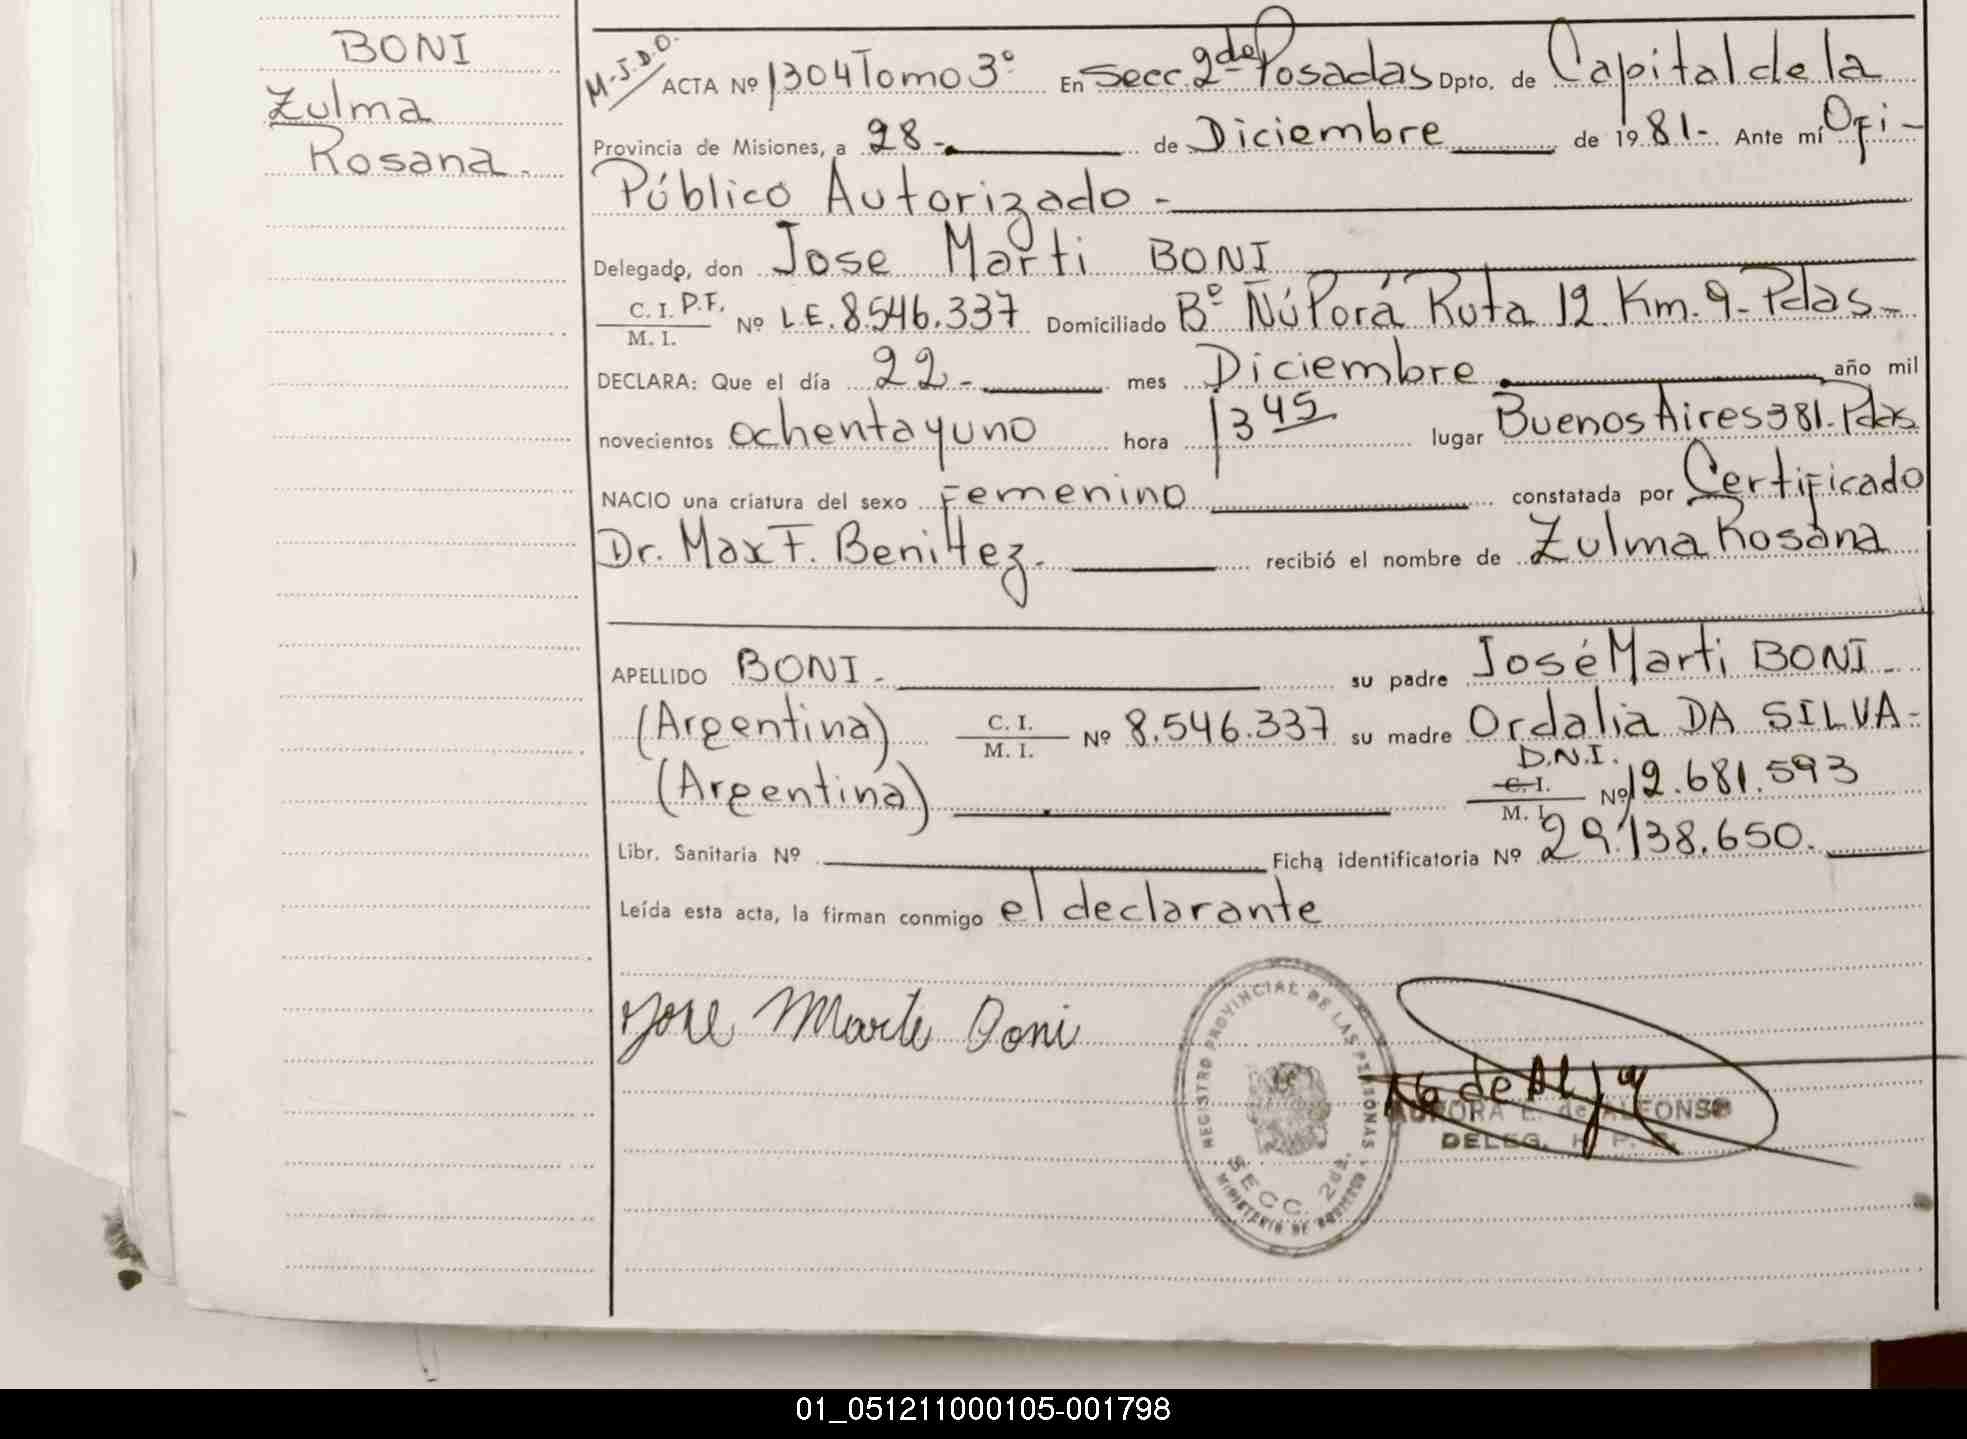 BONI
Zulma
Rosana.
M-J.D.O.
ACTA Nº 1304 Tomo 3º En Secc. 2da Posadas Dpto. de Capital de la
Provincia de Misiones, a 28.- de Diciembre de 1981.- Ante mí Ofi-
Público Autorizado -
Delegado, don Jose Marti BONI
C. I. P.F. M. I. Nº L.E. 8.546.337 Domiciliado Bº Ñú Porá Ruta 12 Km. 9- Pdas-
DECLARA: Que el día 22- mes Diciembre año mil
novecientos ochenta y uno hora 13 45 lugar Buenos Aires 381- Pdas
NACIO una criatura del sexo Femenino constatada por Certificado
Dr. Max F. Benittez. recibió el nombre de Zulma Rosana
APELLIDO BONI- su padre José Marti BONI-
(Argentina) C. I. M. I. Nº 8.546.337 su madre Ordalia DA SILVA-
(Argentina) D.N.I. C. I. M. I. Nº 12.681.593
Libr. Sanitaria Nº Ficha identificatoria Nº 29.138.650.
Leída esta acta, la firman conmigo el declarante
Jose Marti Boni
REGISTRO PROVINCIAL DE LAS PERSONAS
SECC. 2da.
MINISTERIO DE GOBIERNO
AURORA E. de ALFONSO
DELEG. R. P. P.
01_051211000105-001798